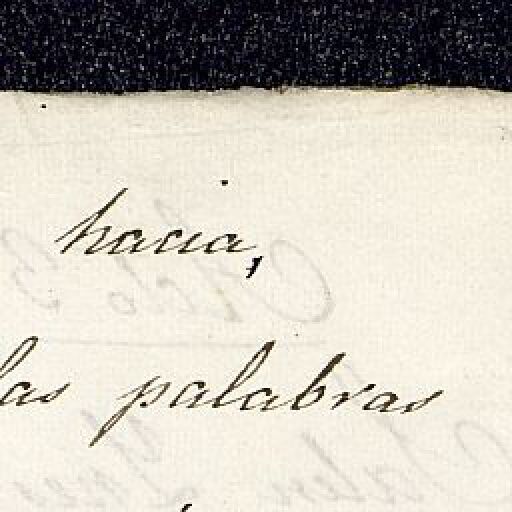 hacia,
las palabras